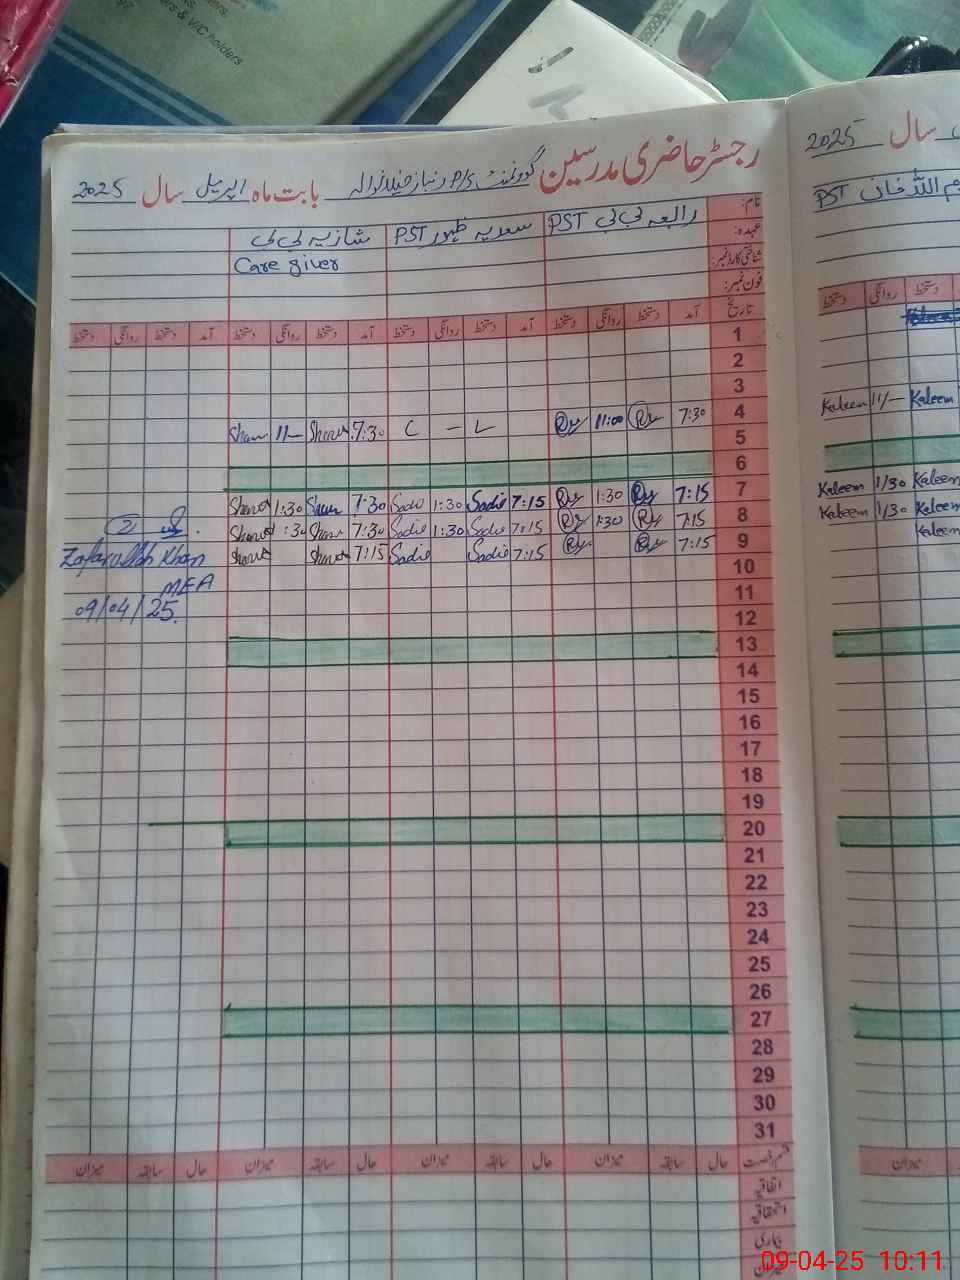 holders
& V/C holders
رجسٹر حاضری مدرسین گورنمنٹ P/S بابت ماہ اپریل سال 2025
نام: رابعہ بی بی PST سعدیہ ظہور PST شازیہ بی بی
عہدہ: Care giver
شناختی کارڈ نمبر:
فون نمبر:
تاریخ آمد دستخط روانگی دستخط آمد دستخط روانگی دستخط آمد دستخط روانگی دستخط آمد دستخط روانگی دستخط
1
2
3
4 7:30 11:00 L — C 7:30 11/—
5
6
7 7:15 1:30 7:15 Sadie 1:30 Sadie 7:30 1:30
8 7:15 1:30 7:15 Sadie 1:30 Sadie 7:30 :30
9 7:15 7:15 Sadie Sadie 7:15
Zafarullah Khan
10
MEA
11
09/04/25.
12
13
14
15
16
17
18
19
20
21
22
23
24
25
26
27
28
29
30
31
قسم رخصت حال سابقہ میزان حال سابقہ میزان حال سابقہ میزان حال سابقہ میزان
اتفاقیہ
استحقاقیہ
بیماری
میزان
سال 2025
اللہ خان PST
دستخط روانگی دستخط
Kaleem 11/— Kaleem
Kaleem 1/30 Kaleem
Kaleem 1/30 Kaleem
Kaleem
میزان
09-04-25 10:11